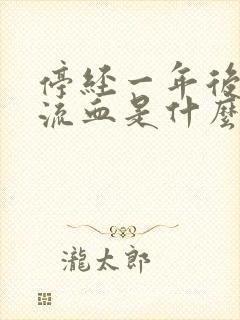 停經一年後
流血是什麼
瀧太郎